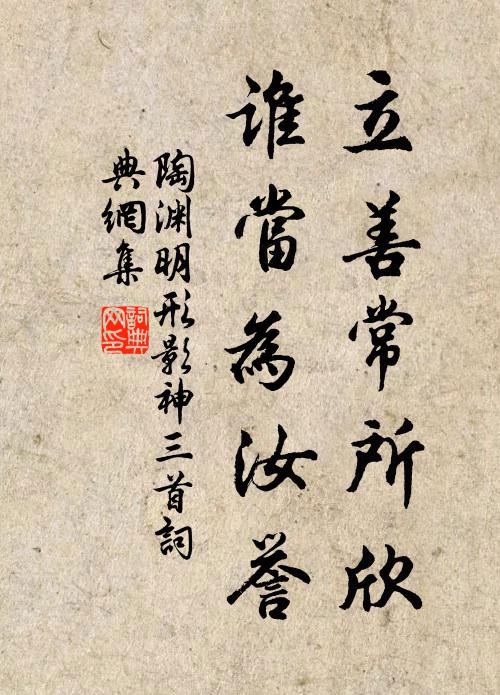 立善常所欣
誰當為汝譽
陶渊明形影神三首詞
典網集
詞典
网印